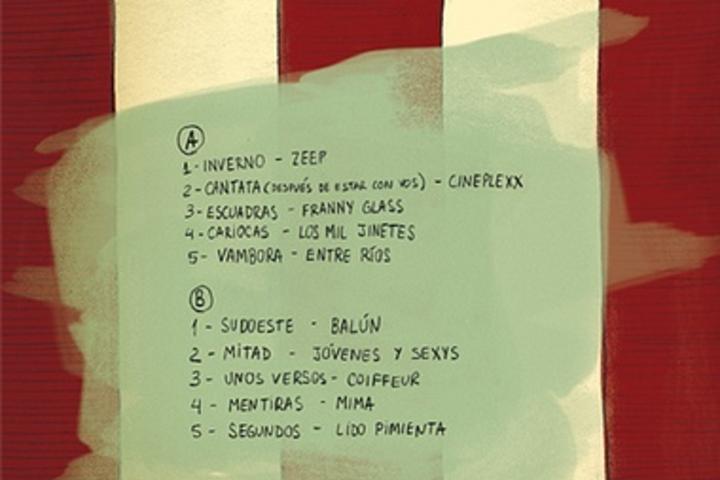 A
1- INVERNO - ZEEP
2- CANTATA (DESPUÉS DE ESTAR CON VOS) - CINEPLEXX
3- ESCUADRAS - FRANNY GLASS
4- CARIOCAS - LOS MIL JINETES
5- VAMBORA - ENTRE RÍOS
B
1- SUDOESTE - BALÚN
2- MITAD - JÓVENES Y SEXYS
3- UNOS VERSOS - COIFFEUR
4- MENTIRAS - MIMA
5- SEGUNDOS - LIDO PIMIENTA